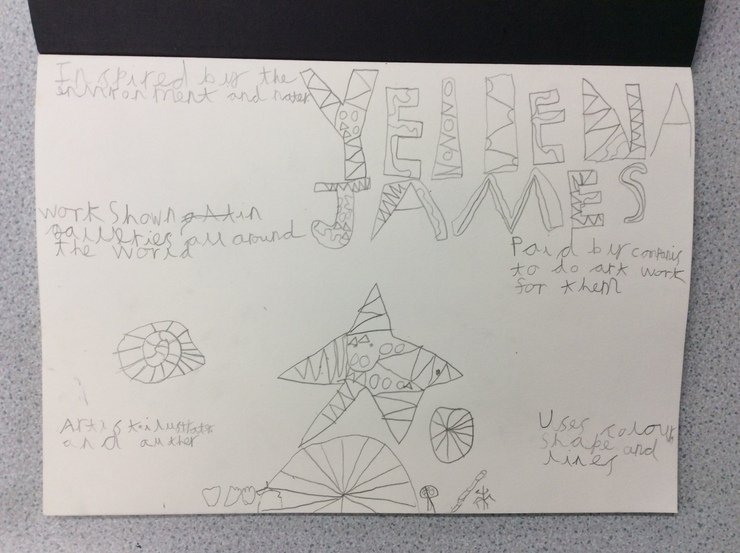 Inspired by the
environment and nater
YELLENA
JAMES
work shown in
gailleries all around
the world
Paid by companis
to do art work
for them
Artist illustrater
and auther
Uses colour
shape and
lines